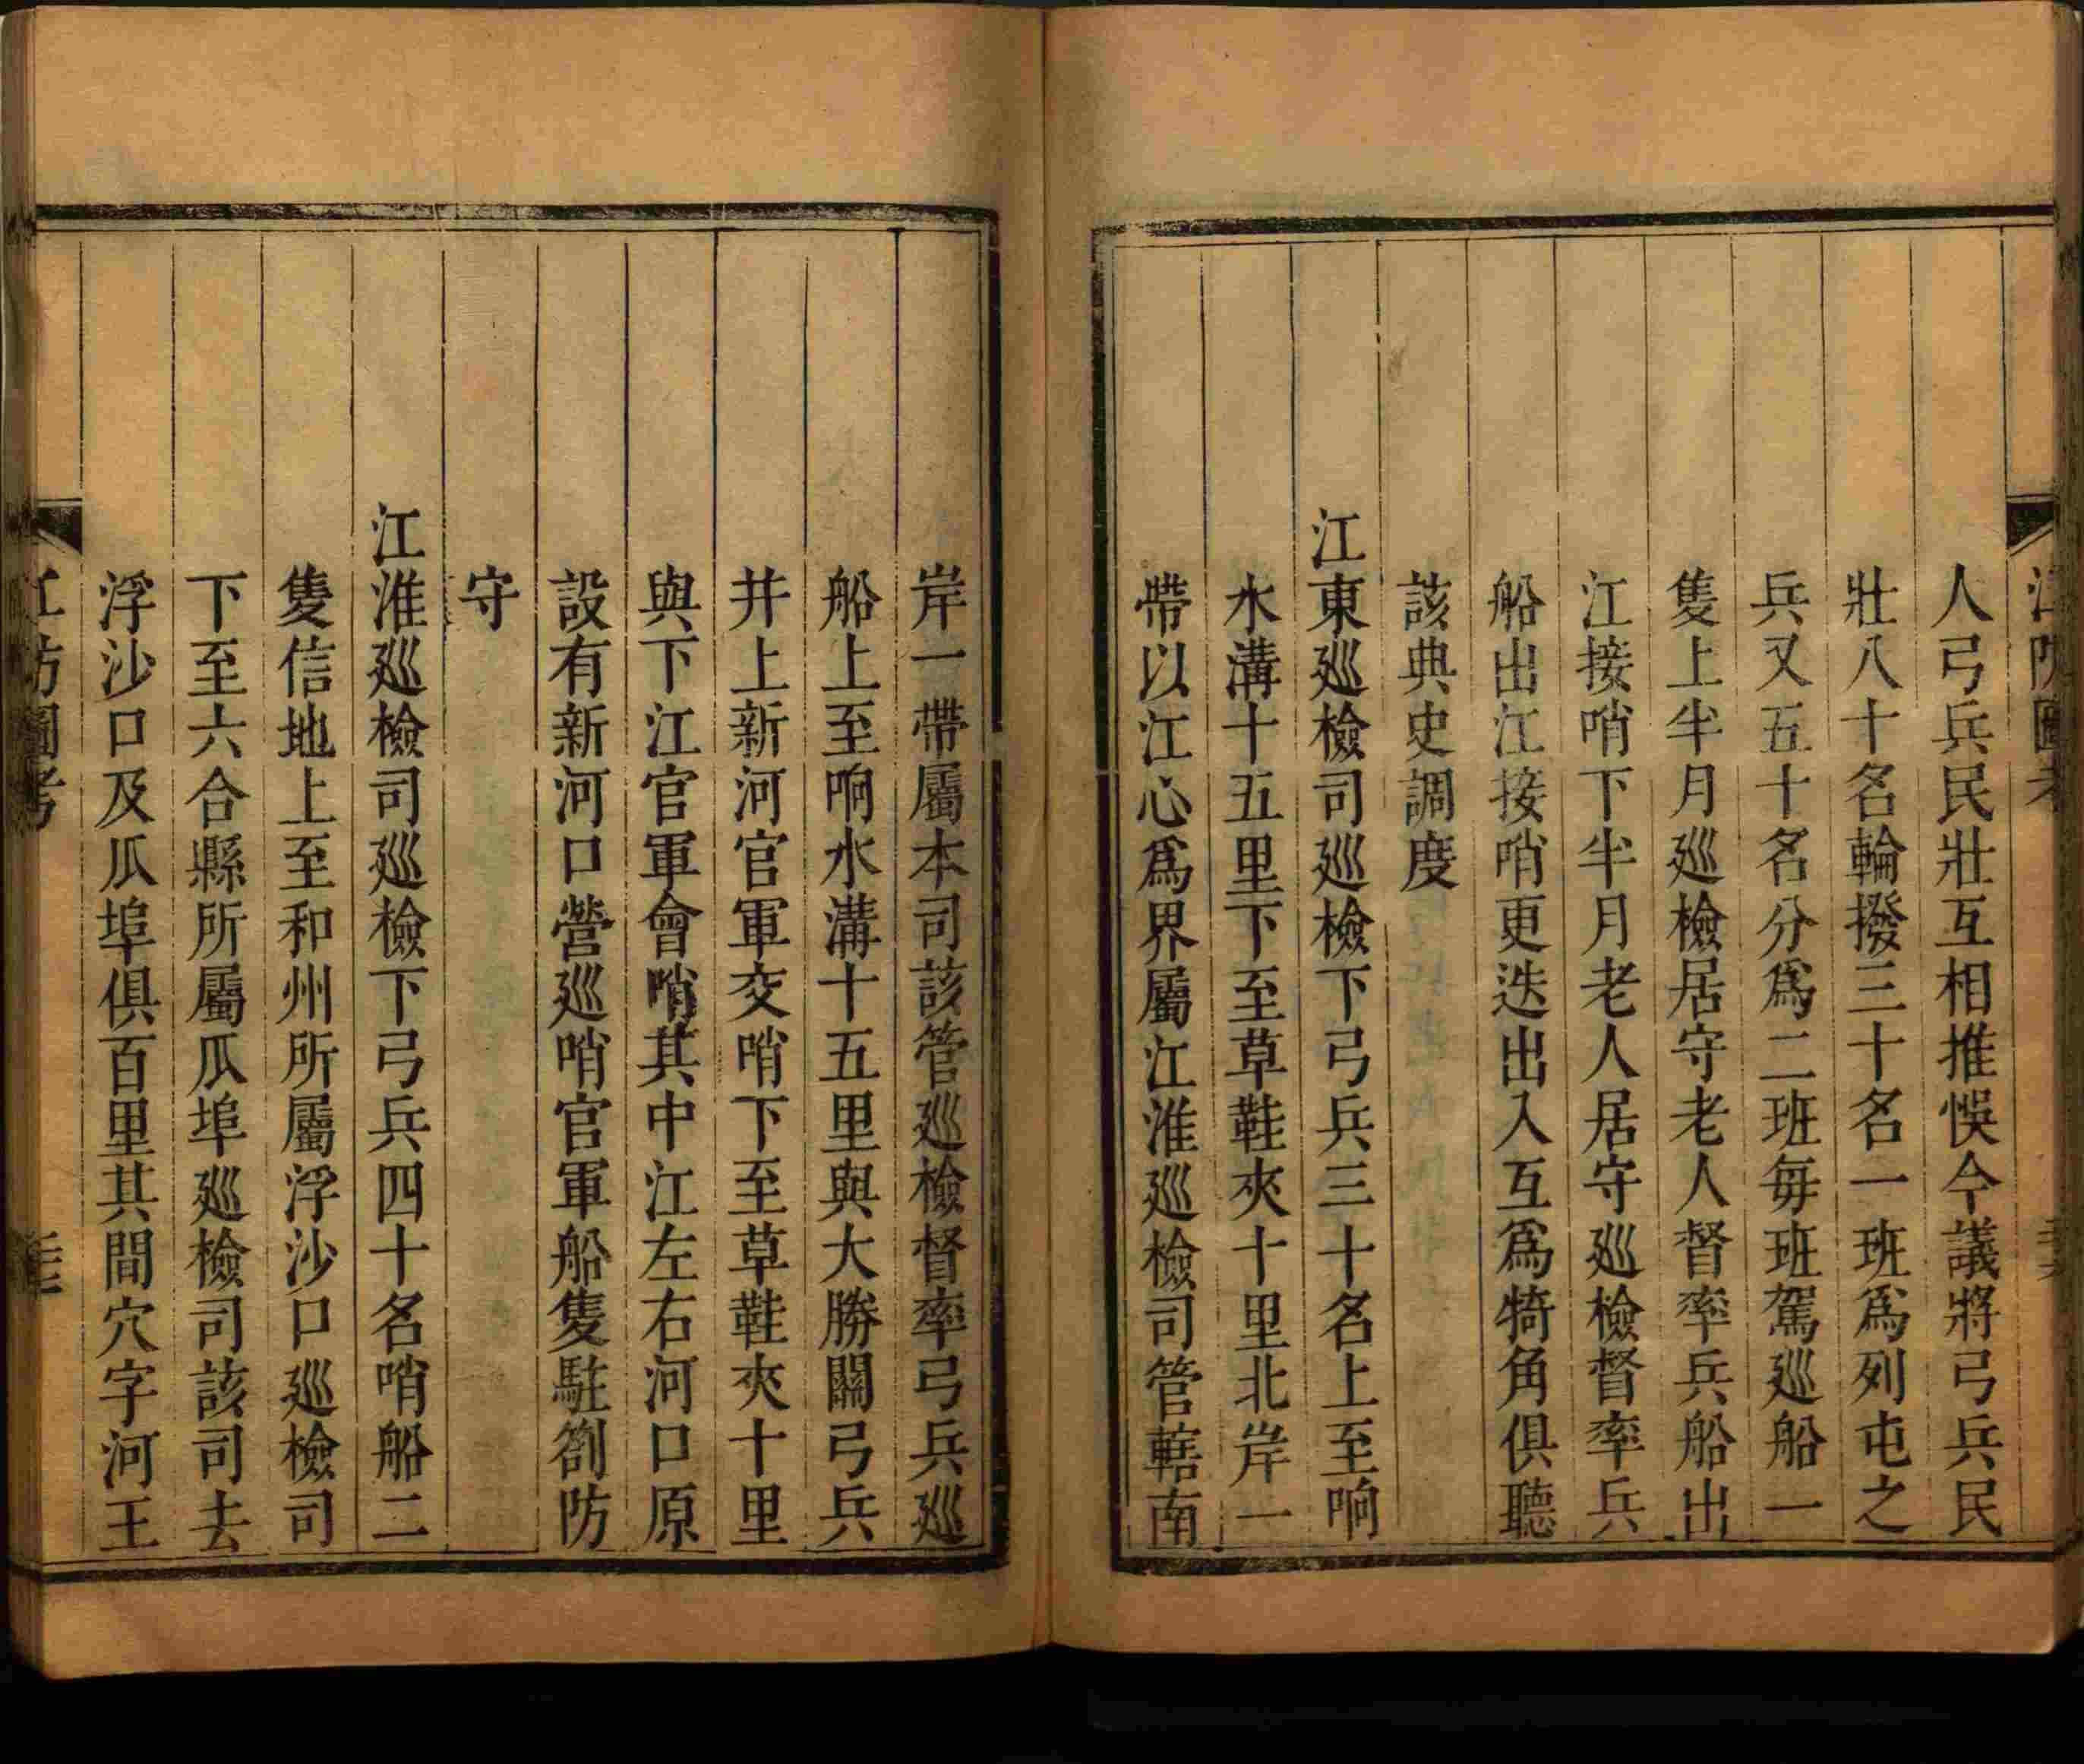 人弓兵民壯互相推悞今議將弓兵民
壯八十名輪撥三十名一班爲列屯之
兵又五十名分爲二班每班駕廵船一
隻上半月廵檢居守老人督率兵船出
江接哨下半月老人居守廵檢督率兵
船出江接哨更迭出入互爲犄角俱聽
該典史調度
江東廵檢司廵檢下弓兵三十名上至响
水溝十五里下至草鞋夾十里北岸一
帶以江心爲界屬江淮廵檢司管轄南
岸一帶屬本司該管廵檢督率弓兵廵
船上至响水溝十五里與大勝關弓兵
并上新河官軍交哨下至草鞋夾十里
與下江官軍會哨其中江左右河口原
設有新河口營廵哨官軍船隻駐劄防
守
江淮廵檢司廵檢下弓兵四十名哨船二
隻信地上至和州所屬浮沙口廵檢司
下至六合縣所屬瓜埠廵檢司該司去
浮沙口及瓜埠俱百里其間穴字河王
江防圖考